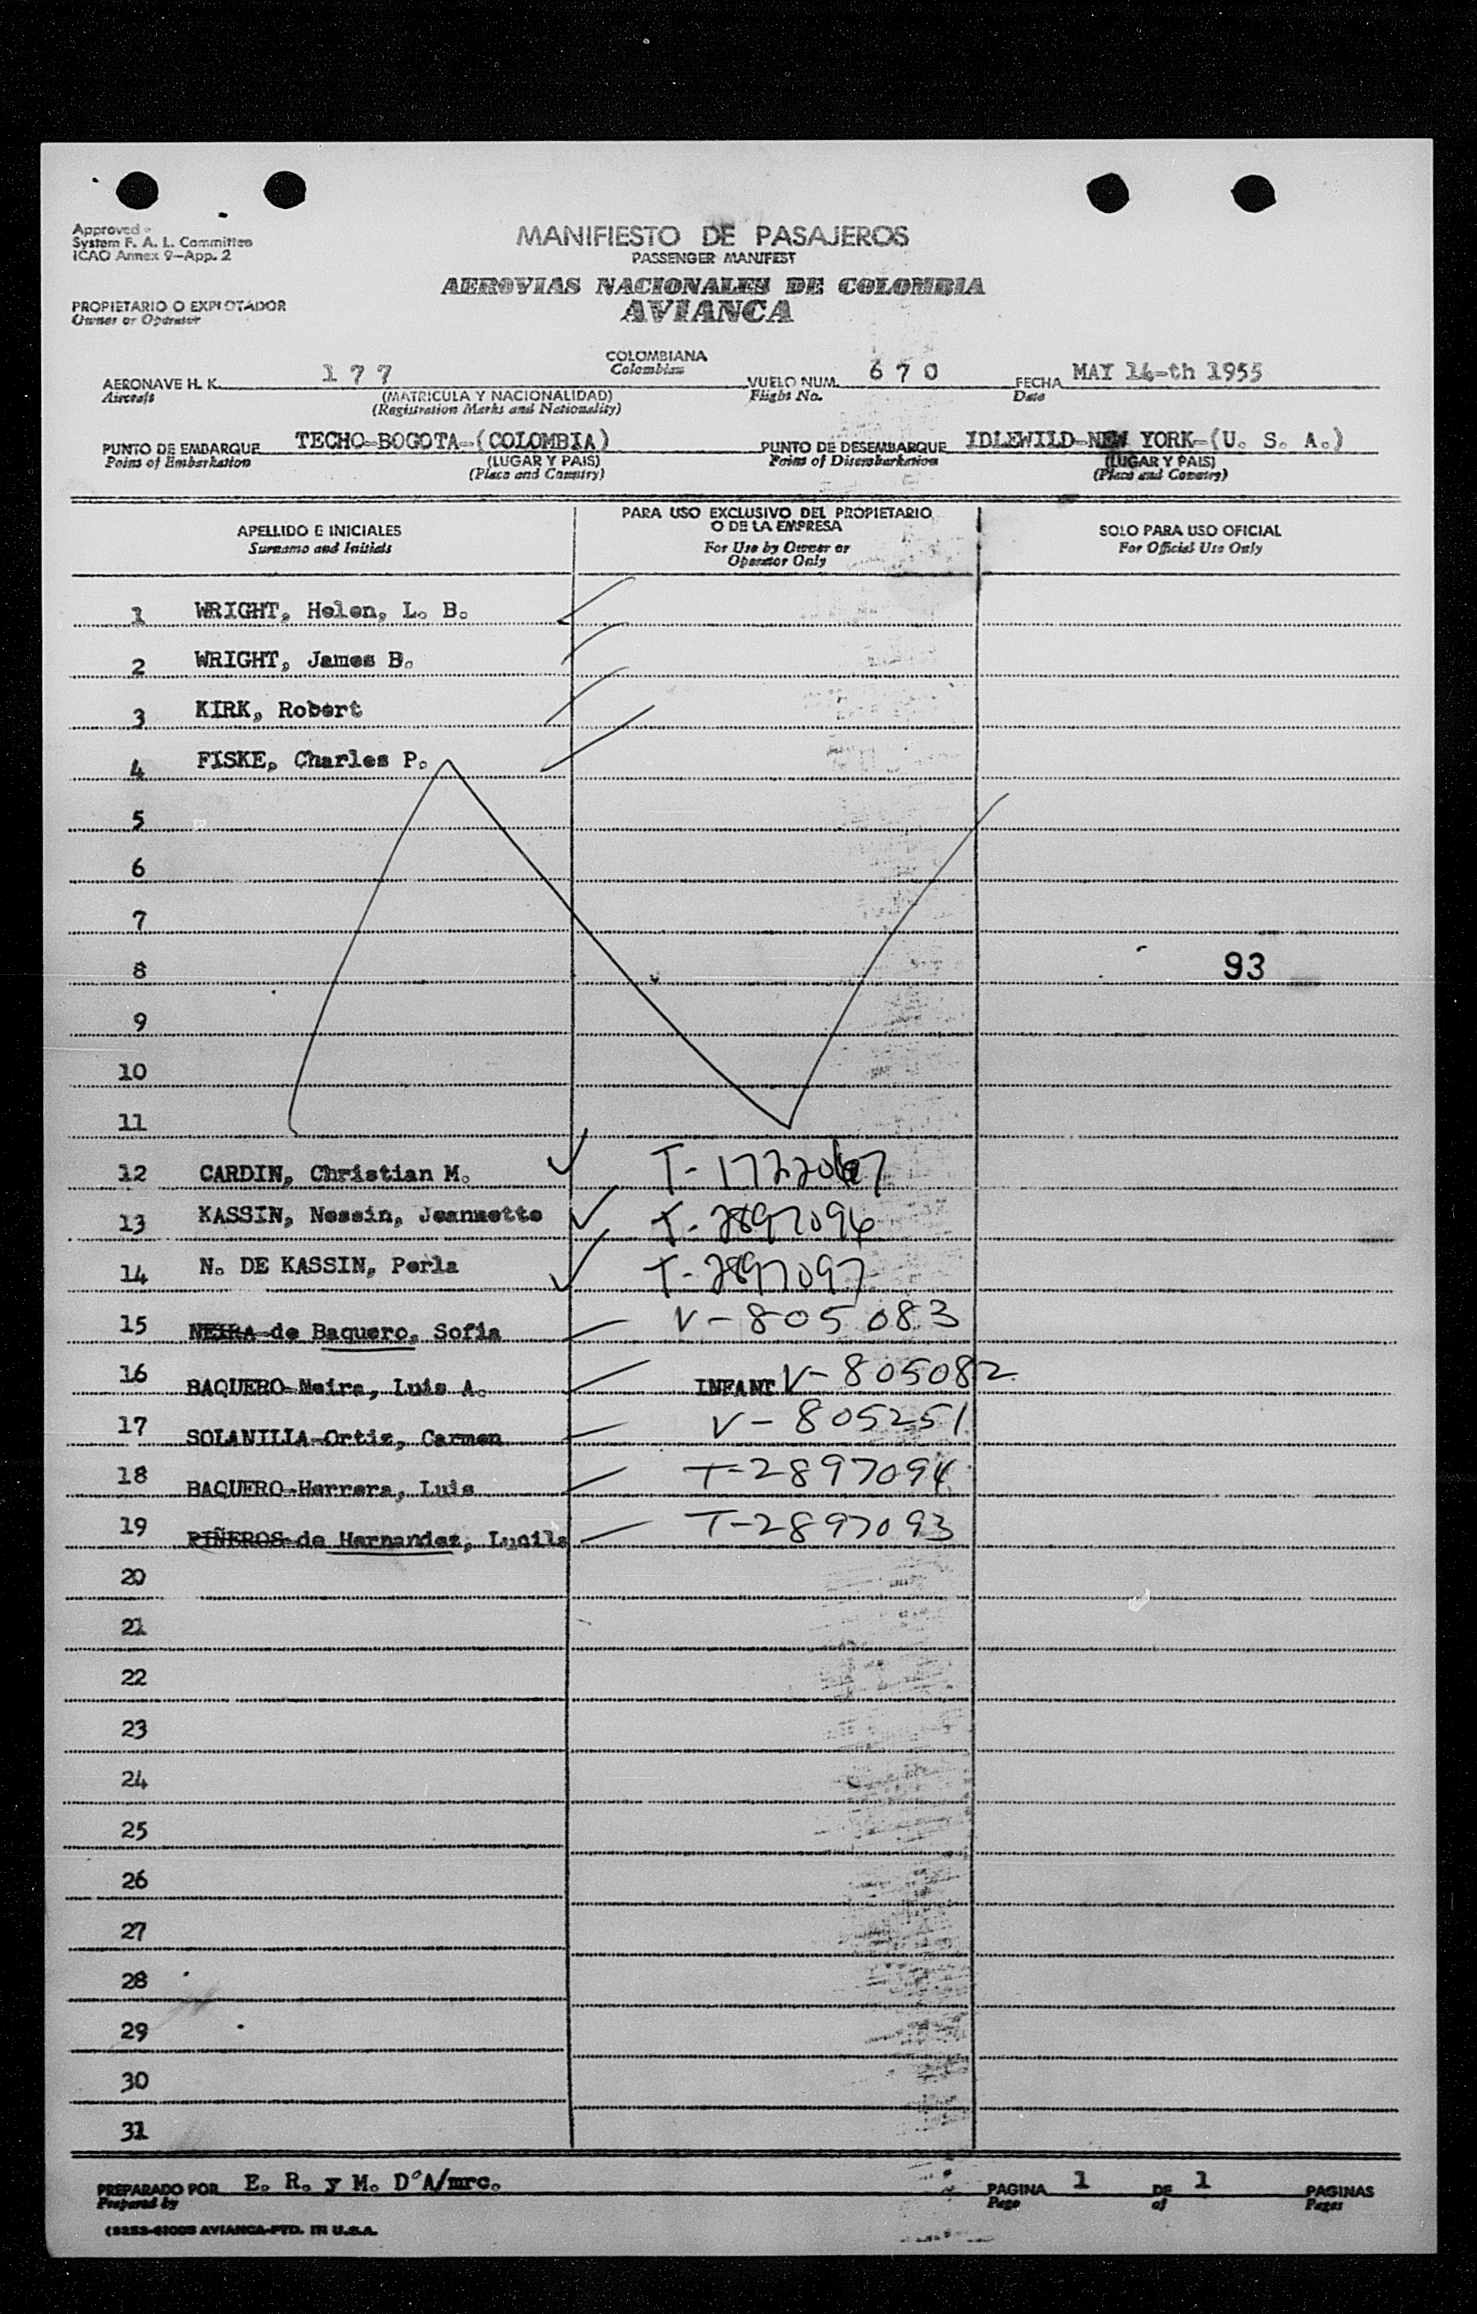 Approved
System F. A. L. Committee
ICAO Annex 9-App. 2
MANIFIESTO DE PASAJEROS
PASSENGER MANIFEST
AEROVIAS NACIONALES DE COLOMBIA
AVIANCA
PROPIETARIO O EXPLOTADOR
Owner or Operator
COLOMBIANA
Colombian
AERONAVE H. K. 177 VUELO NUM. 670 FECHA MAY 14-th 1955
Aircraft (MATRICULA Y NACIONALIDAD) Flight No. Date
(Registration Marks and Nationality)
PUNTO DE EMBARQUE TECHO-BOGOTA-(COLOMBIA) PUNTO DE DESEMBARQUE IDLEWILD-NEW YORK-(U. S. A.)
Point of Embarkation (LUGAR Y PAIS) Point of Disembarkation (LUGAR Y PAIS)
(Place and Country) (Place and Country)
APELLIDO E INICIALES PARA USO EXCLUSIVO DEL PROPIETARIO O DE LA EMPRESA SOLO PARA USO OFICIAL
Surname and Initials For Use by Owner or Operator Only For Official Use Only
1 WRIGHT, Helen, L. B.
2 WRIGHT, James B.
3 KIRK, Robert
4 FISKE, Charles P.
5
6
7
8 93
9
10
11
12 CARDIN, Christian M. T-1722067
13 KASSIN, Nessin, Jeannette T-2897096
14 N. DE KASSIN, Perla T-2897097
15 NEIRA-de Baquero, Sofia V-805083
16 BAQUERO-Neira, Luis A. INFANT V-805082
17 SOLANILLA-Ortiz, Carmen V-805251
18 BAQUERO-Herrera, Luis T-2897094
19 PIÑEROS-de Hernandez, Lucila T-2897093
20
21
22
23
24
25
26
27
28
29
30
31
PREPARADO POR E. R. y M. D'A/mrc. PAGINA 1 DE 1 PAGINAS
Prepared by Page of Pages
AVIANCA-PTD. IN U.S.A.